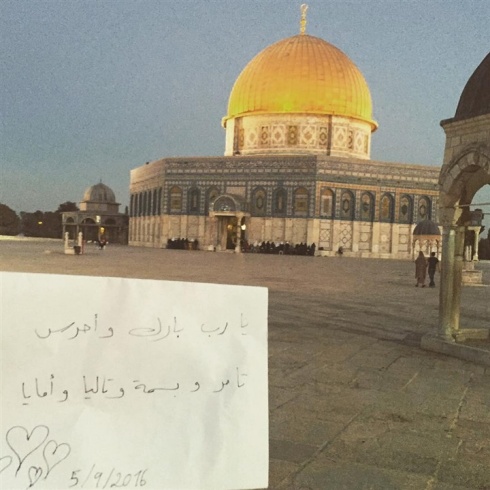 يا رب بارك وأحرس
تامر و بسمة وتاليا وأمايا
5/9/2016